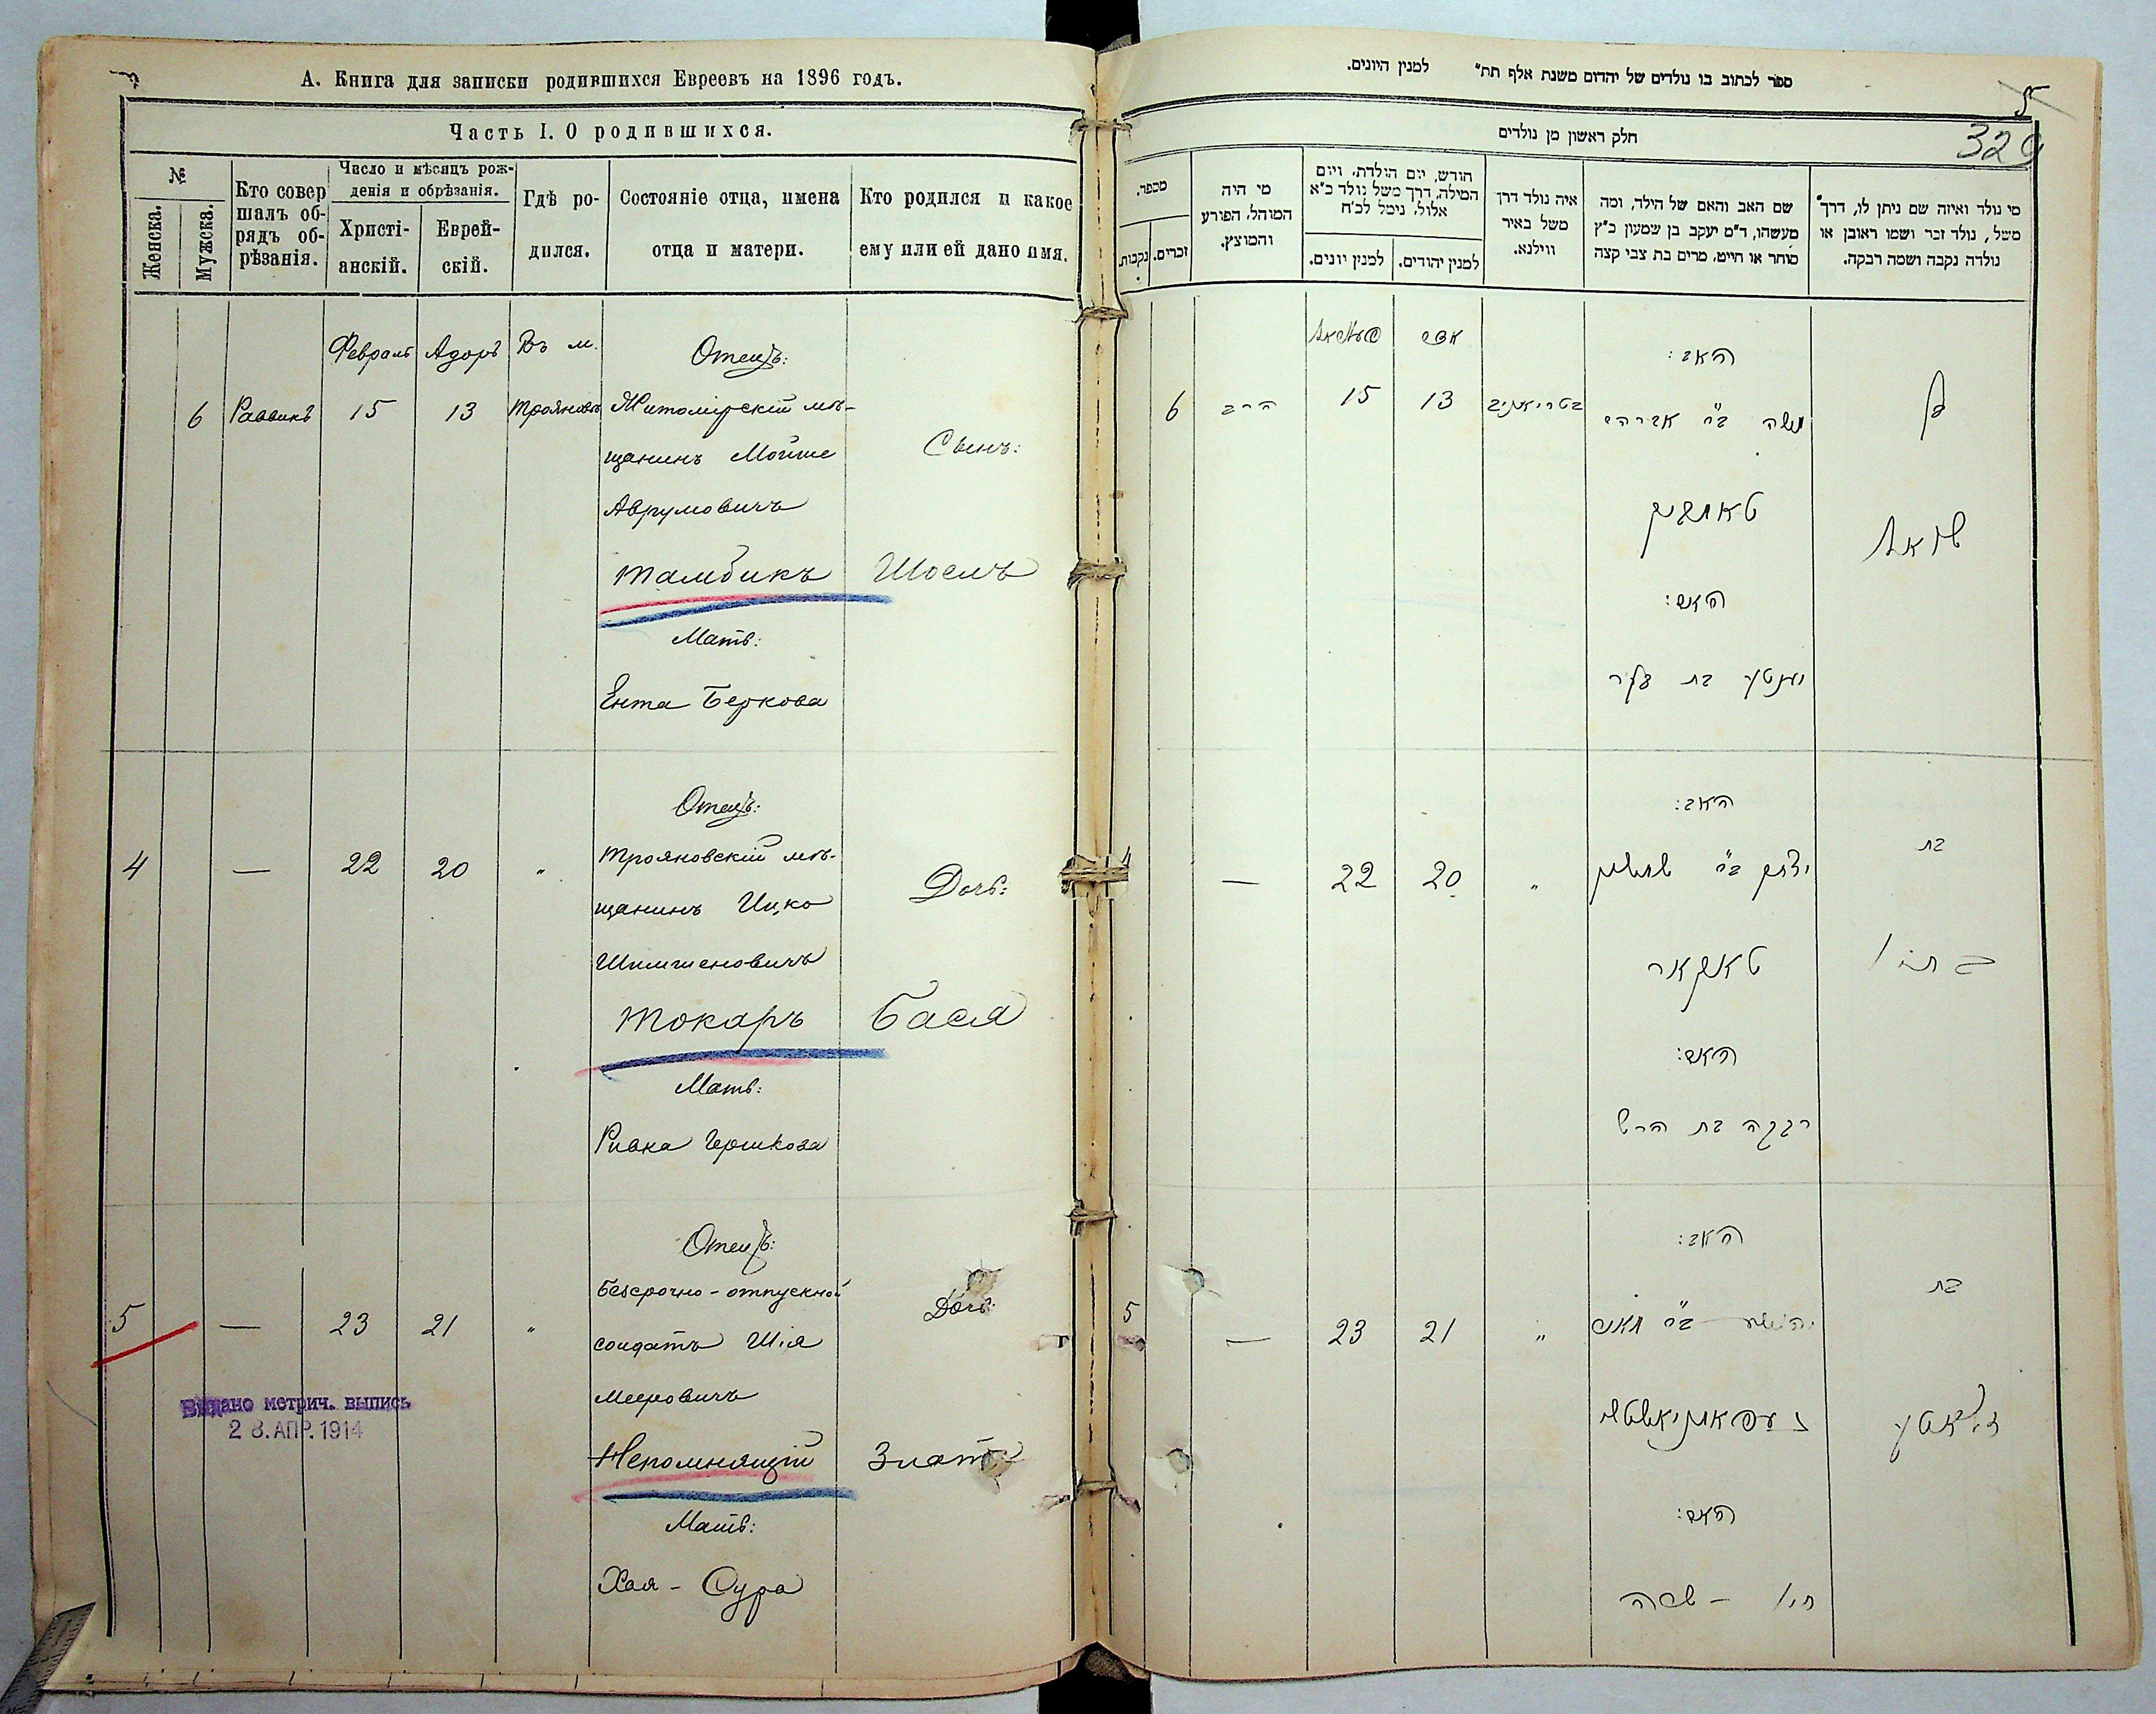 А. Книга для записки родившихся Евреевъ на 1896 годъ.
Часть I. О родившихся.
№
Женска.
Мужска.
Кто совер
шалъ об-
рядъ об-
рѣзанія.
Число и мѣсяцъ рож-
денія и обрѣзанія.
Христі-
анскій.
Еврей-
скій.
Гдѣ ро-
дился.
Состояніе отца, имена
отца и матери.
Кто родился и какое
ему или ей дано имя.
Февраль Адоръ Въ м. Отецъ:
6 Раввинъ 15 13 Трояновъ Житомірскій мѣ-
щанинъ Мойше Сынъ:
Аврумовичъ
Тамбикъ Шоелъ
Мать:
Ента Беркова
Отецъ:
4 — 22 20 " Трояновскій мѣ-
щанинъ Ицко Дочь:
Шимшеновичъ
Токаръ Бася
Мать:
Ривка Гершкова
Отецъ:
5 — 23 21 " Безсрочно-отпускной Дочь:
солдатъ Шія
Мееровичъ
Непомнящій Злата
Мать:
Хая - Сура
Выдано метрич. выпись
2 8. АПР. 1914
ספר לכתוב בו נולדים של יהדום משנת אלף תת" למנין היונים.
5
329
חלק ראשון מן נולדים
מי נולד ואיזה שם ניתן לו, דרך
משל, נולד זכר ושמו ראובן או
נולדה נקבה ושמה רבקה.
שם האב והאם של הילד, ומה
מעשהו, ד"מ יעקב בן שמעון כ"ץ
סוחר או חייט, מרים בת צבי קצה
איה נולד דרך
משל באיר
ווילנא.
חודש, יום הולדת, ויום
המילה, דרך משל נולד כ"א
אלול, נימל לכ"ח
למנין יהודים.
למנין יונים.
מי היה
המוהל, הפורע
והמוצץ.
מספר.
זכרים.
נקבות.
האב:
6 הרב 15 13
בן
משה ב"ר אברהם
שואל
האם:
יענטע בת בער
האב:
— 22 20 "
בת
יצחק ב"ר שמשון
טאקאר
בתי'
האם:
רבקה בת הרש
האב:
5 — 23 21 "
בת
יהושע ב"ר מאיר
זלאטע
האם:
חי' - שרה